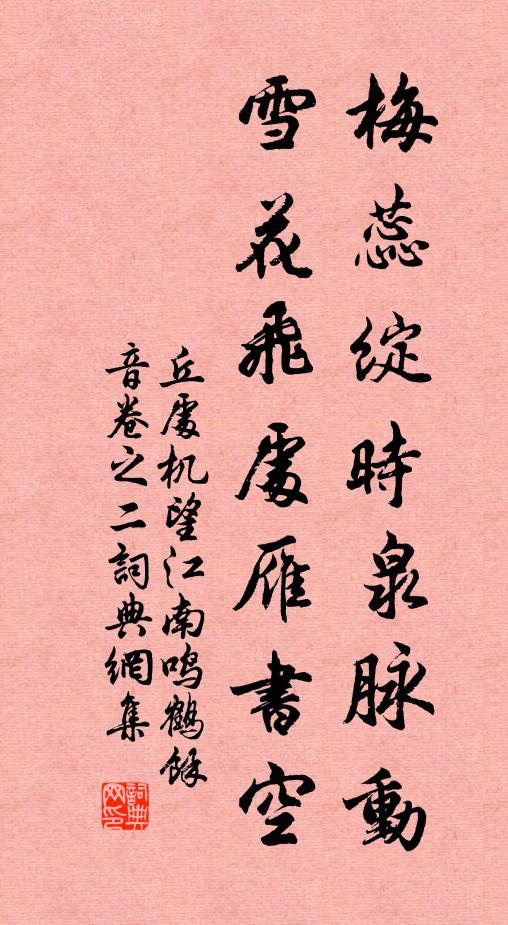 梅蕊綻時泉脉動
雪花飛處雁書空
丘處机望江南鳴鶴餘
音卷之二詞典網集
詞典
网印